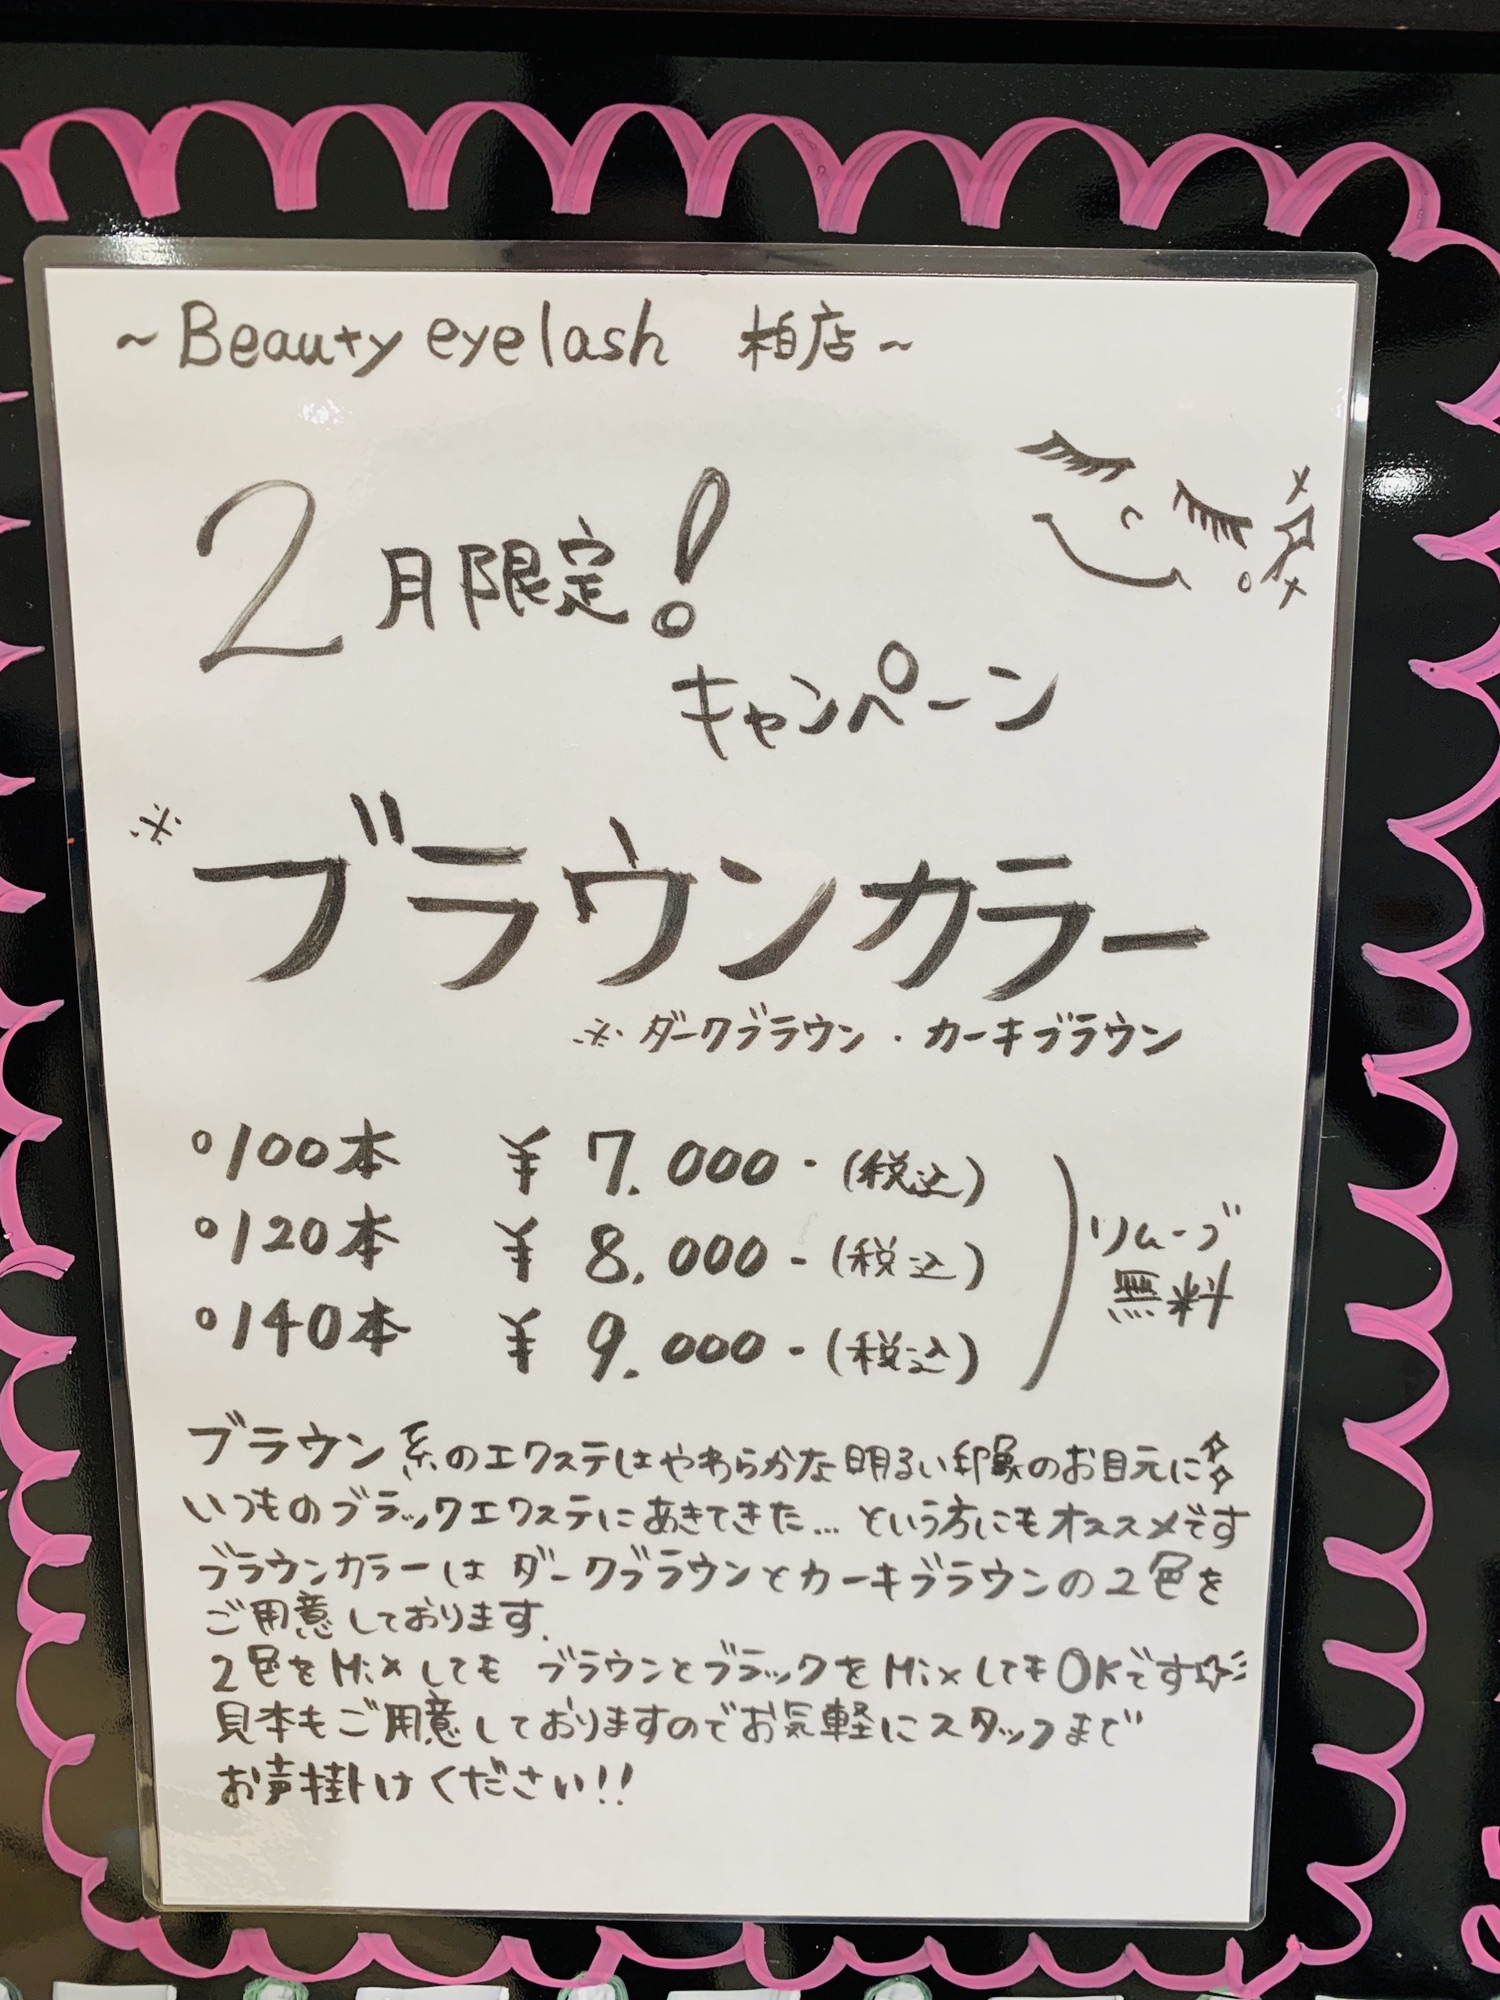 ~ Beauty eyelash 柏店 ~
2月限定!
キャンペーン
※ブラウンカラー
※ダークブラウン・カーキブラウン
°100本 ¥7.000-(税込)
°120本 ¥8.000-(税込)
°140本 ¥9.000-(税込)
リムーブ
無料
ブラウン系のエクステはやわらかな明るい印象のお目元に
いつものブラックエクステにあきてきた...という方にもオススメです
ブラウンカラーはダークブラウンとカーキブラウンの2色を
ご用意しております.
2色をMixしても ブラウンとブラックをMixしてもOKです☆
見本もご用意しておりますのでお気軽にスタッフまで
お声掛けください!!